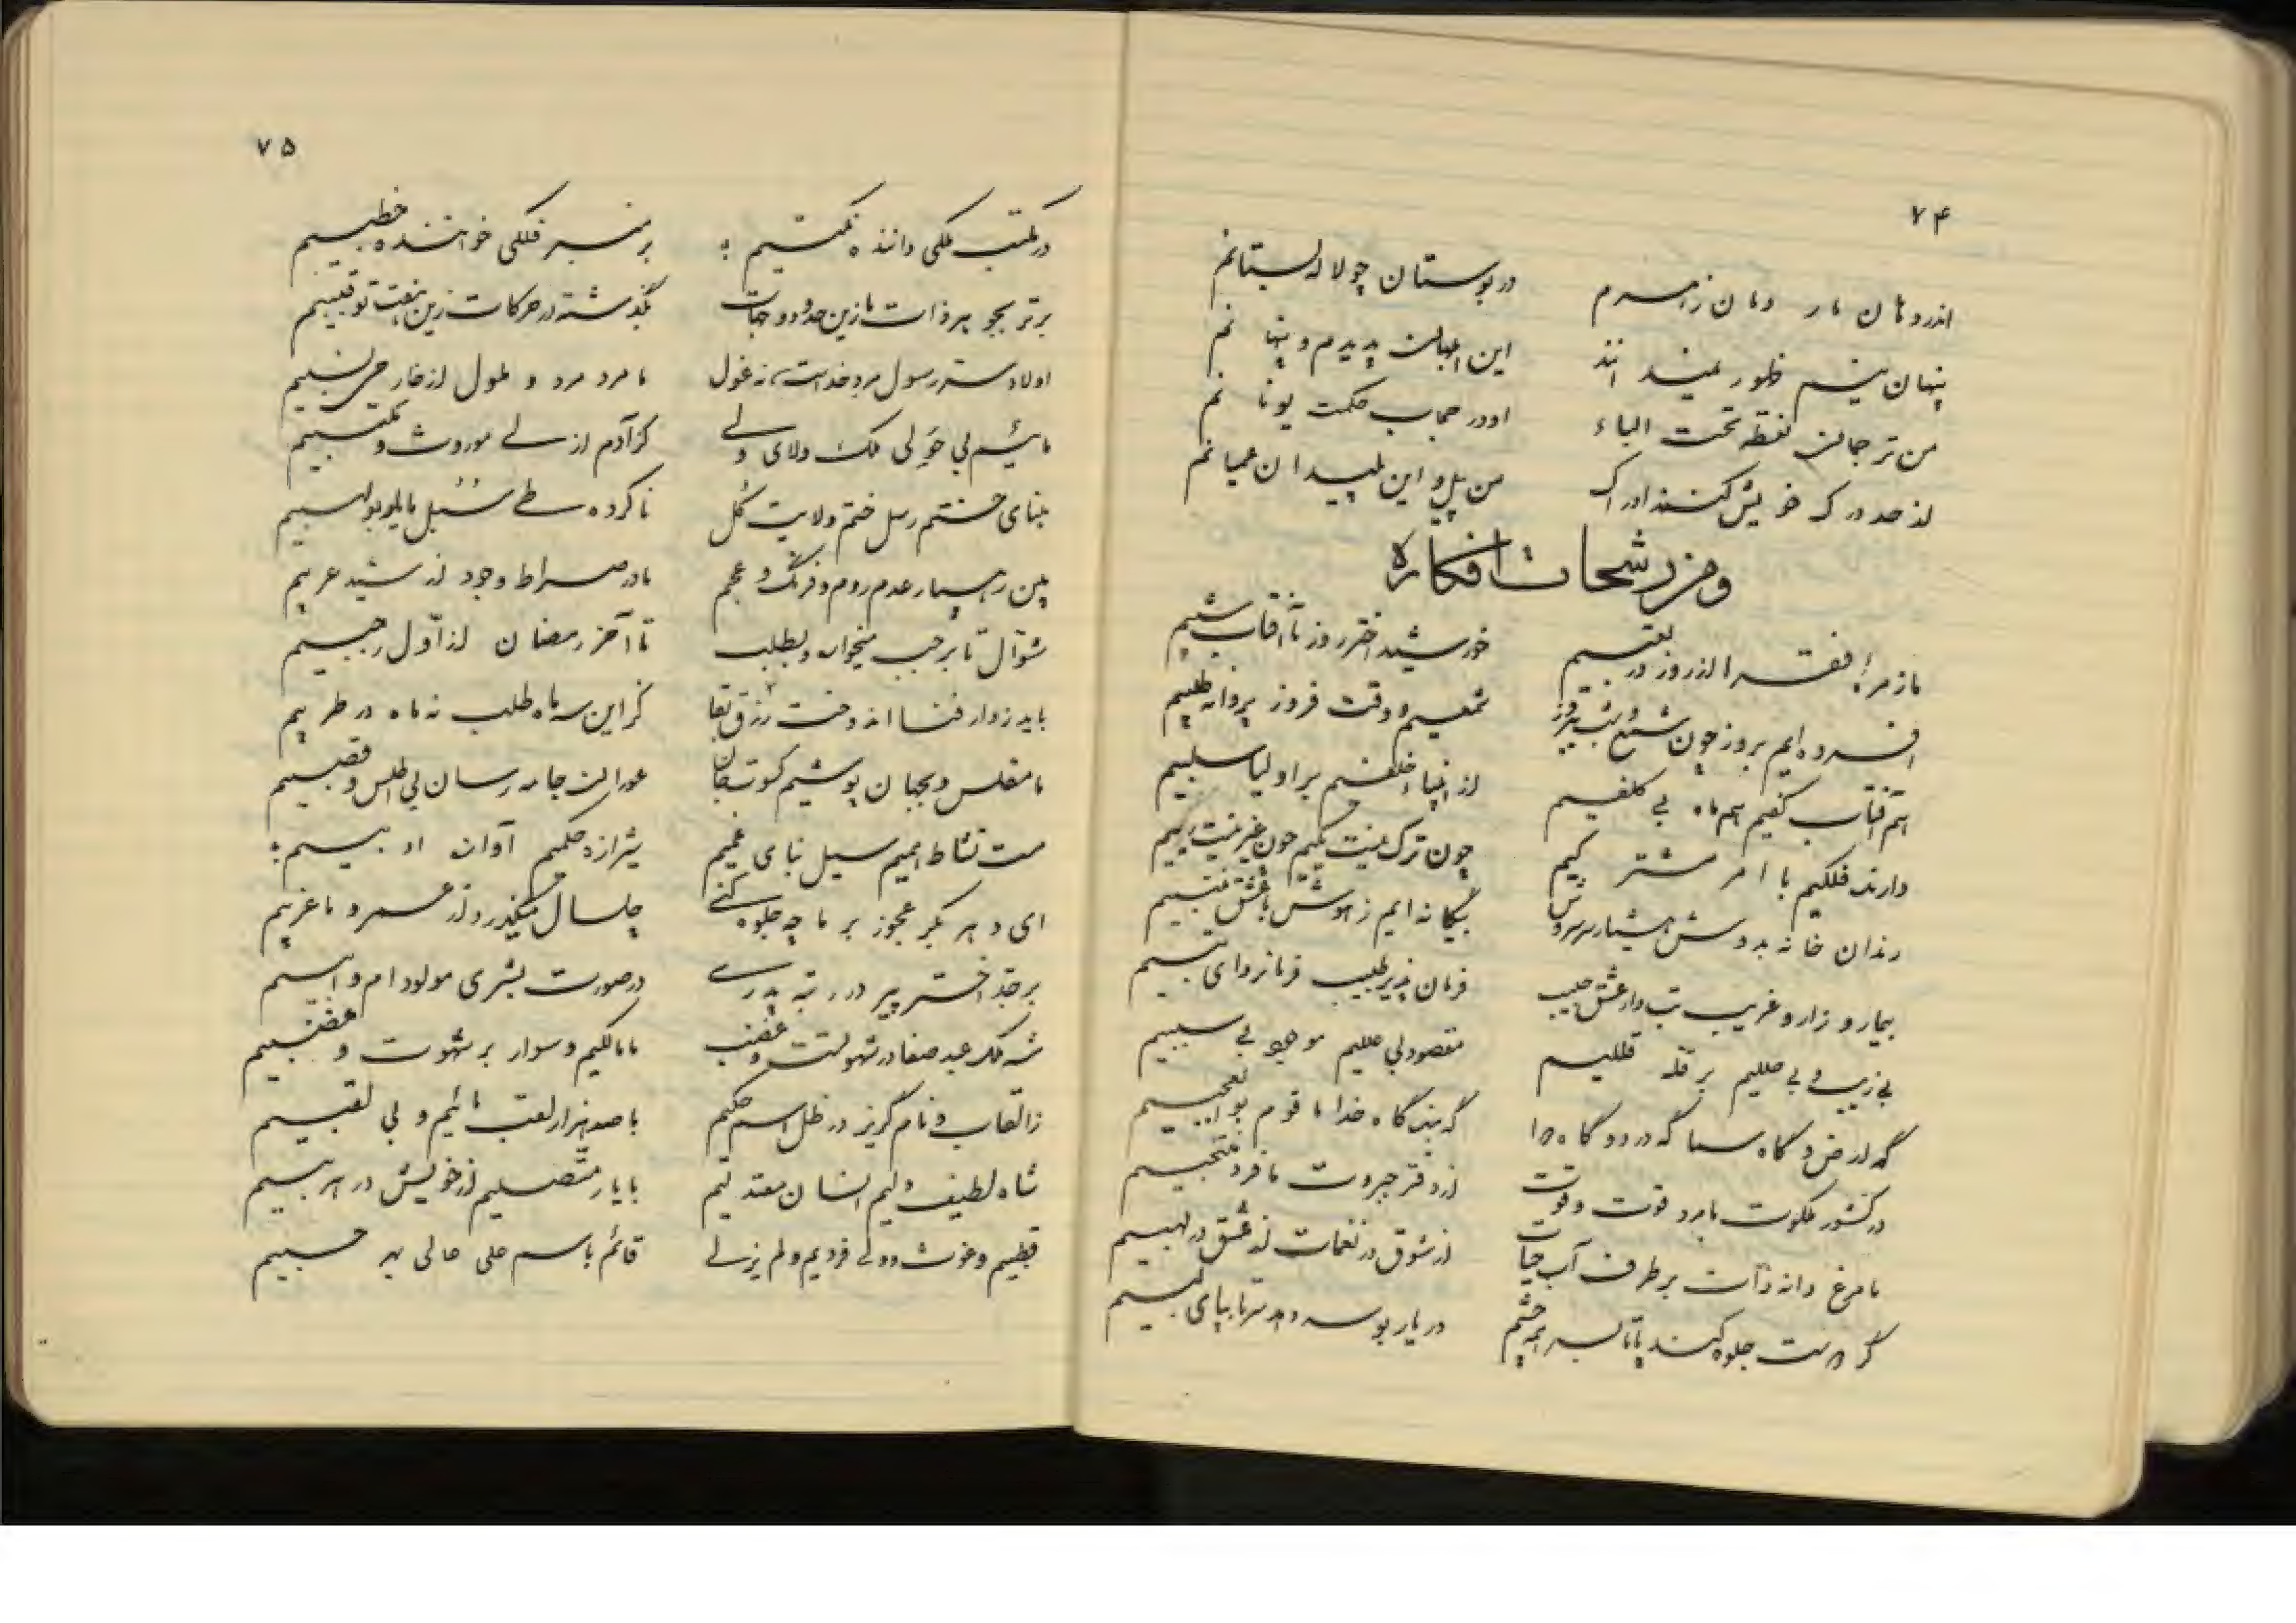 ۷۴
اندر دهان مار دمان زهرم در بوستان چو لاله بستانم
پنهان نیم ظهور نمیدانند این ابلهان پدیدم و پنهانم
من ترجمان نقطه تحت الباء او در حجاب حکمت یونانم
از صد درک خویش کنند ادراک من پیل و این پلیدان عمیانم
و من رشحات افکاره
ما زمره فقرا از روز در تعبیم خورشید اختر روز تا آفتاب شبیم
افسرده ایم بروز چون شمع و شب پیروز شمعیم و وقت فروز پروانه طلبیم
هم آفتاب کفیم هم ماه بی کلفیم از انبیا خلفیم بر اولیا سلبیم
دارنده فلکیم با امر مشترکیم چون ترک نیت یکیم چون غیر نیست
رندان خانه بدوش هشیار سر بیگانه ایم ز هوش با عشق منتسبیم
بیمار و زار و غریب تب دار عشق حبیب فرمان پذیر طبیب فرمانروای تبیم
بی زیب و بی حللیم بر قله قللیم مقصود بی عللیم موجود بی سببیم
گه ارض و گاه سما گه درد و گاه دوا گه بنده گاه خدا ما قوم بوالعجبیم
در کشور ملکوت ما مرد قوت و قوت از دفتر جبروت ما فرد منتجبیم
ما مرغ دانه ذات بر طرف آب حیات از شوق در نغمات از عشق در لهبیم
گر دوست جلوه کند پا تا بسر همه چشم ور یار بوسه دهد سر تا بپای لبیم
۷۵
در مکتب ملکی داننده نکتیم بر منبر فلکی خواننده خطبیم
برتر بجوهر ذات ما زین حدود و جهات بگذشته در حرکات زین هفت تو قببیم
اولاد ستر رسول مرد خداست نه غول ما مرد مرد و ملول از خار
مائیم بی حولی ملک ولای ولی کز آدم ازلی موروث و مکتسبیم
بنای ختم رسل ختم ولایت کل ناکرده طی سبل ما
بین رهسپار عدم روم و فرنگ و عجم ما در صراط وجود از شید عربیم
شوال تا برجب میخوان و بطلب تا آخر رمضان از اول رجبیم
باید ز دار فنا اندوخت رزق بقا کز این سه ماه طلب نه ماه در طربیم
ما مفلس و بجهان پوشیم کسوت جان عوران جامه رسان بی اطلس و قصبیم
مست نشاط میم سیل بنای غمیم شیرازه حکمیم آوان ادبیم
ای دهر بکر عجوز بر ما چه جلوه کنی چلسال میگذرد از عمر و ما عزبیم
بر جد اختر پیر در رتبه پدری در صورت بشری مولود ام و ابیم
شه ملک عبد صفا در شهوتست و غضب ما مالکیم و سوار بر شهوت و غضبیم
ز القاب و نام گریز در ظل اسم حکیم با صد هزار لقب مائیم و بی لقبیم
شاه لطیف دلیم انسان معتدلیم با یار متصلیم از خویش در هربیم
قطبیم و غوث ودود فردیم و لم یزلی قائم باسم علی عالی به حسبیم